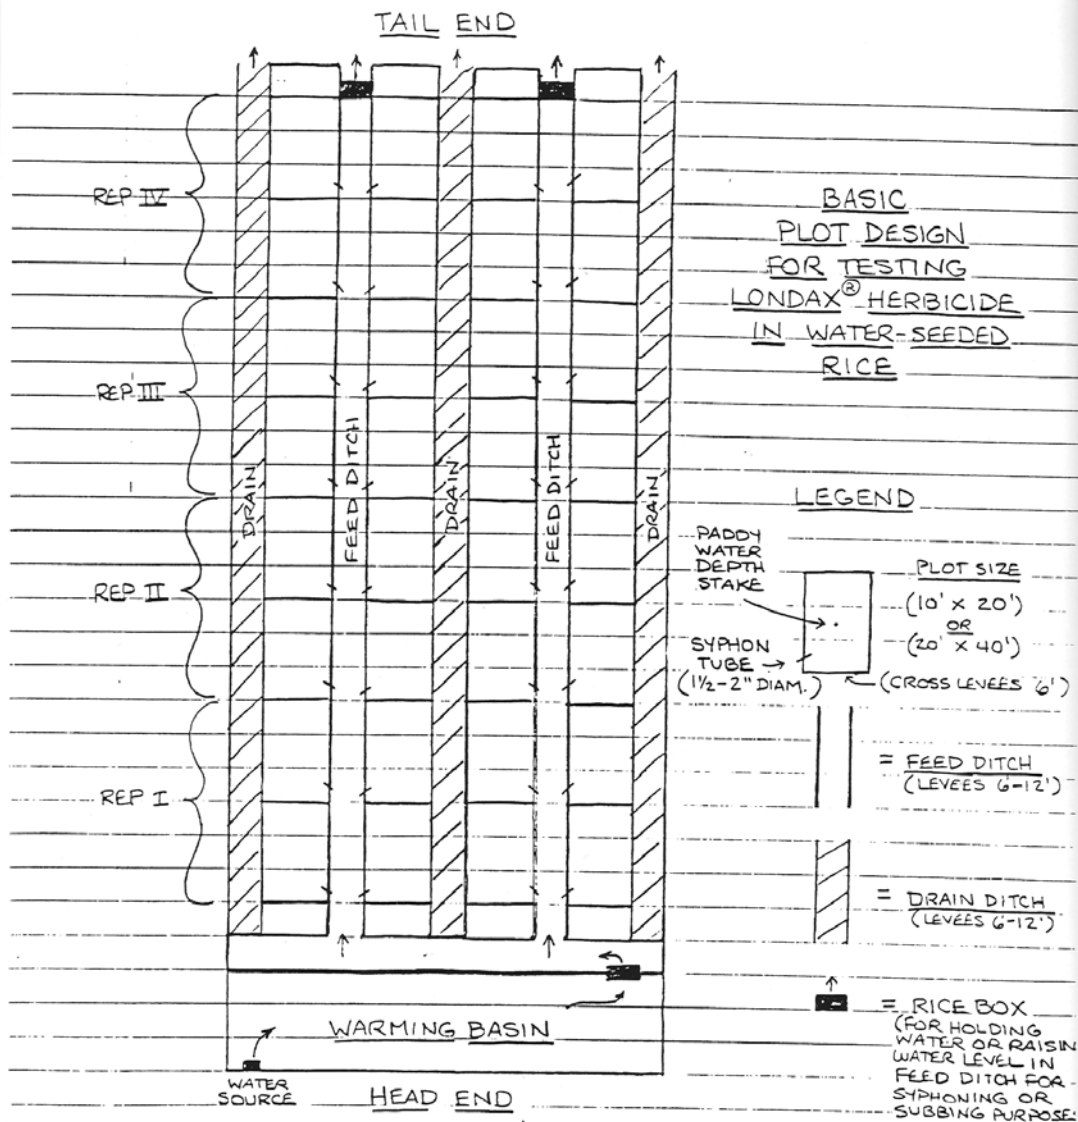 TAIL END
REP IV
REP III
REP II
REP I
DRAIN
FEED DITCH
DRAIN
FEED DITCH
DRAIN
WARMING BASIN
WATER
SOURCE
HEAD END
BASIC
PLOT DESIGN
FOR TESTING
LONDAX® HERBICIDE
IN WATER-SEEDED
RICE
LEGEND
PADDY
WATER
DEPTH
STAKE
SYPHON
TUBE
(1½-2" DIAM.)
PLOT SIZE
(10' x 20')
OR
(20' x 40')
(CROSS LEVEES 6')
= FEED DITCH
(LEVEES 6-12')
= DRAIN DITCH
(LEVEES 6-12')
= RICE BOX
(FOR HOLDING
WATER OR RAISIN
WATER LEVEL IN
FEED DITCH FOR
SYPHONING OR
SUBBING PURPOSE